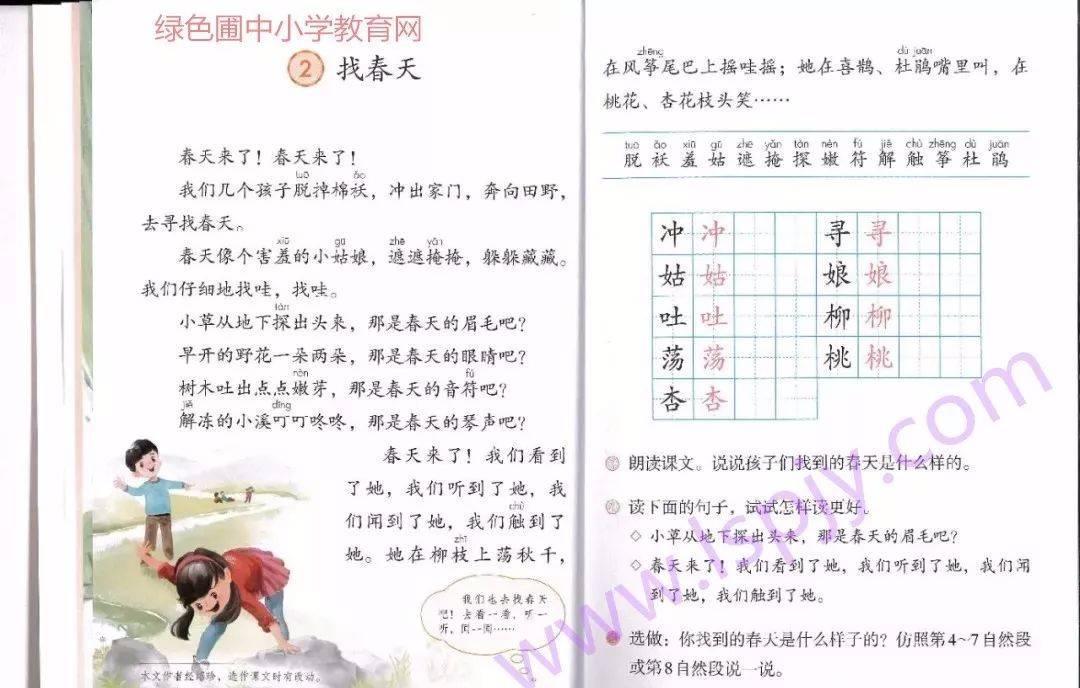 绿色圃中小学教育网
2 找春天
春天来了！春天来了！
tuō ǎo
我们几个孩子脱掉棉袄，冲出家门，奔向田野，
去寻找春天。
xiū gū zhē yǎn
春天像个害羞的小姑娘，遮遮掩掩，躲躲藏藏。
我们仔细地找哇，找哇。
tàn
小草从地下探出头来，那是春天的眉毛吧？
早开的野花一朵两朵，那是春天的眼睛吧？
nèn fú
树木吐出点点嫩芽，那是春天的音符吧？
jiě dīng
解冻的小溪叮叮咚咚，那是春天的琴声吧？
春天来了！我们看到
了她，我们听到了她，我
chù
们闻到了她，我们触到了
zhī
她。她在柳枝上荡秋千，
我们也去找春天
吧！去看一看，听一
听，闻一闻……
本文作者经绍珍，选作课文时有改动。
zhēng dù juān
在风筝尾巴上摇哇摇；她在喜鹊、杜鹃嘴里叫，在
桃花、杏花枝头笑……
tuō ǎo xiū gū zhē yǎn tàn nèn fú jiě chù zhēng dù juān
脱 袄 羞 姑 遮 掩 探 嫩 符 解 触 筝 杜 鹃
冲 冲 寻 寻
姑 姑 娘 娘
吐 吐 柳 柳
荡 荡 桃 桃
杏 杏
朗读课文。说说孩子们找到的春天是什么样的。
读下面的句子，试试怎样读更好。
◇ 小草从地下探出头来，那是春天的眉毛吧？
◇ 春天来了！我们看到了她，我们听到了她，我们闻
到了她，我们触到了她。
选做：你找到的春天是什么样子的？仿照第4~7自然段
或第8自然段说一说。
www.lspjy.com